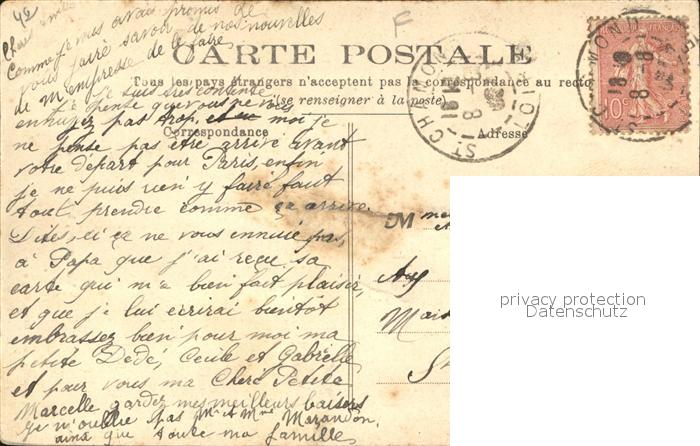 Comme je vous avais promis de
vous faire savoir de nos nouvelles
je m'empresse de le faire
CARTE POSTALE
Tous les pays étrangers n'acceptent pas la correspondance au recto
(se renseigner à la poste)
Je suis très contente
Je pense que vous ne vous
ennuyez pas trop, moi je
Correspondance
Adresse
ne pense pas être arrivé avant
votre départ pour Paris, enfin
je ne puis rien y faire faut
tout prendre comme ça arrive.
Dites, si ça ne vous ennuie pas,
à Papa que j'ai reçu sa
carte qui m'a bien fait plaisir,
et que je lui écrirai bientôt
embrassez bien pour moi ma
petite Dédé, Cécile et Gabrielle
et pour vous ma Chère Petite
Marcelle gardez mes meilleurs baisers
Je n'oublie pas Mr et Mme Marandon,
ainsi que toute ma famille
ST CHAMOND
LOIRE
10c
M
privacy protection
Datenschutz